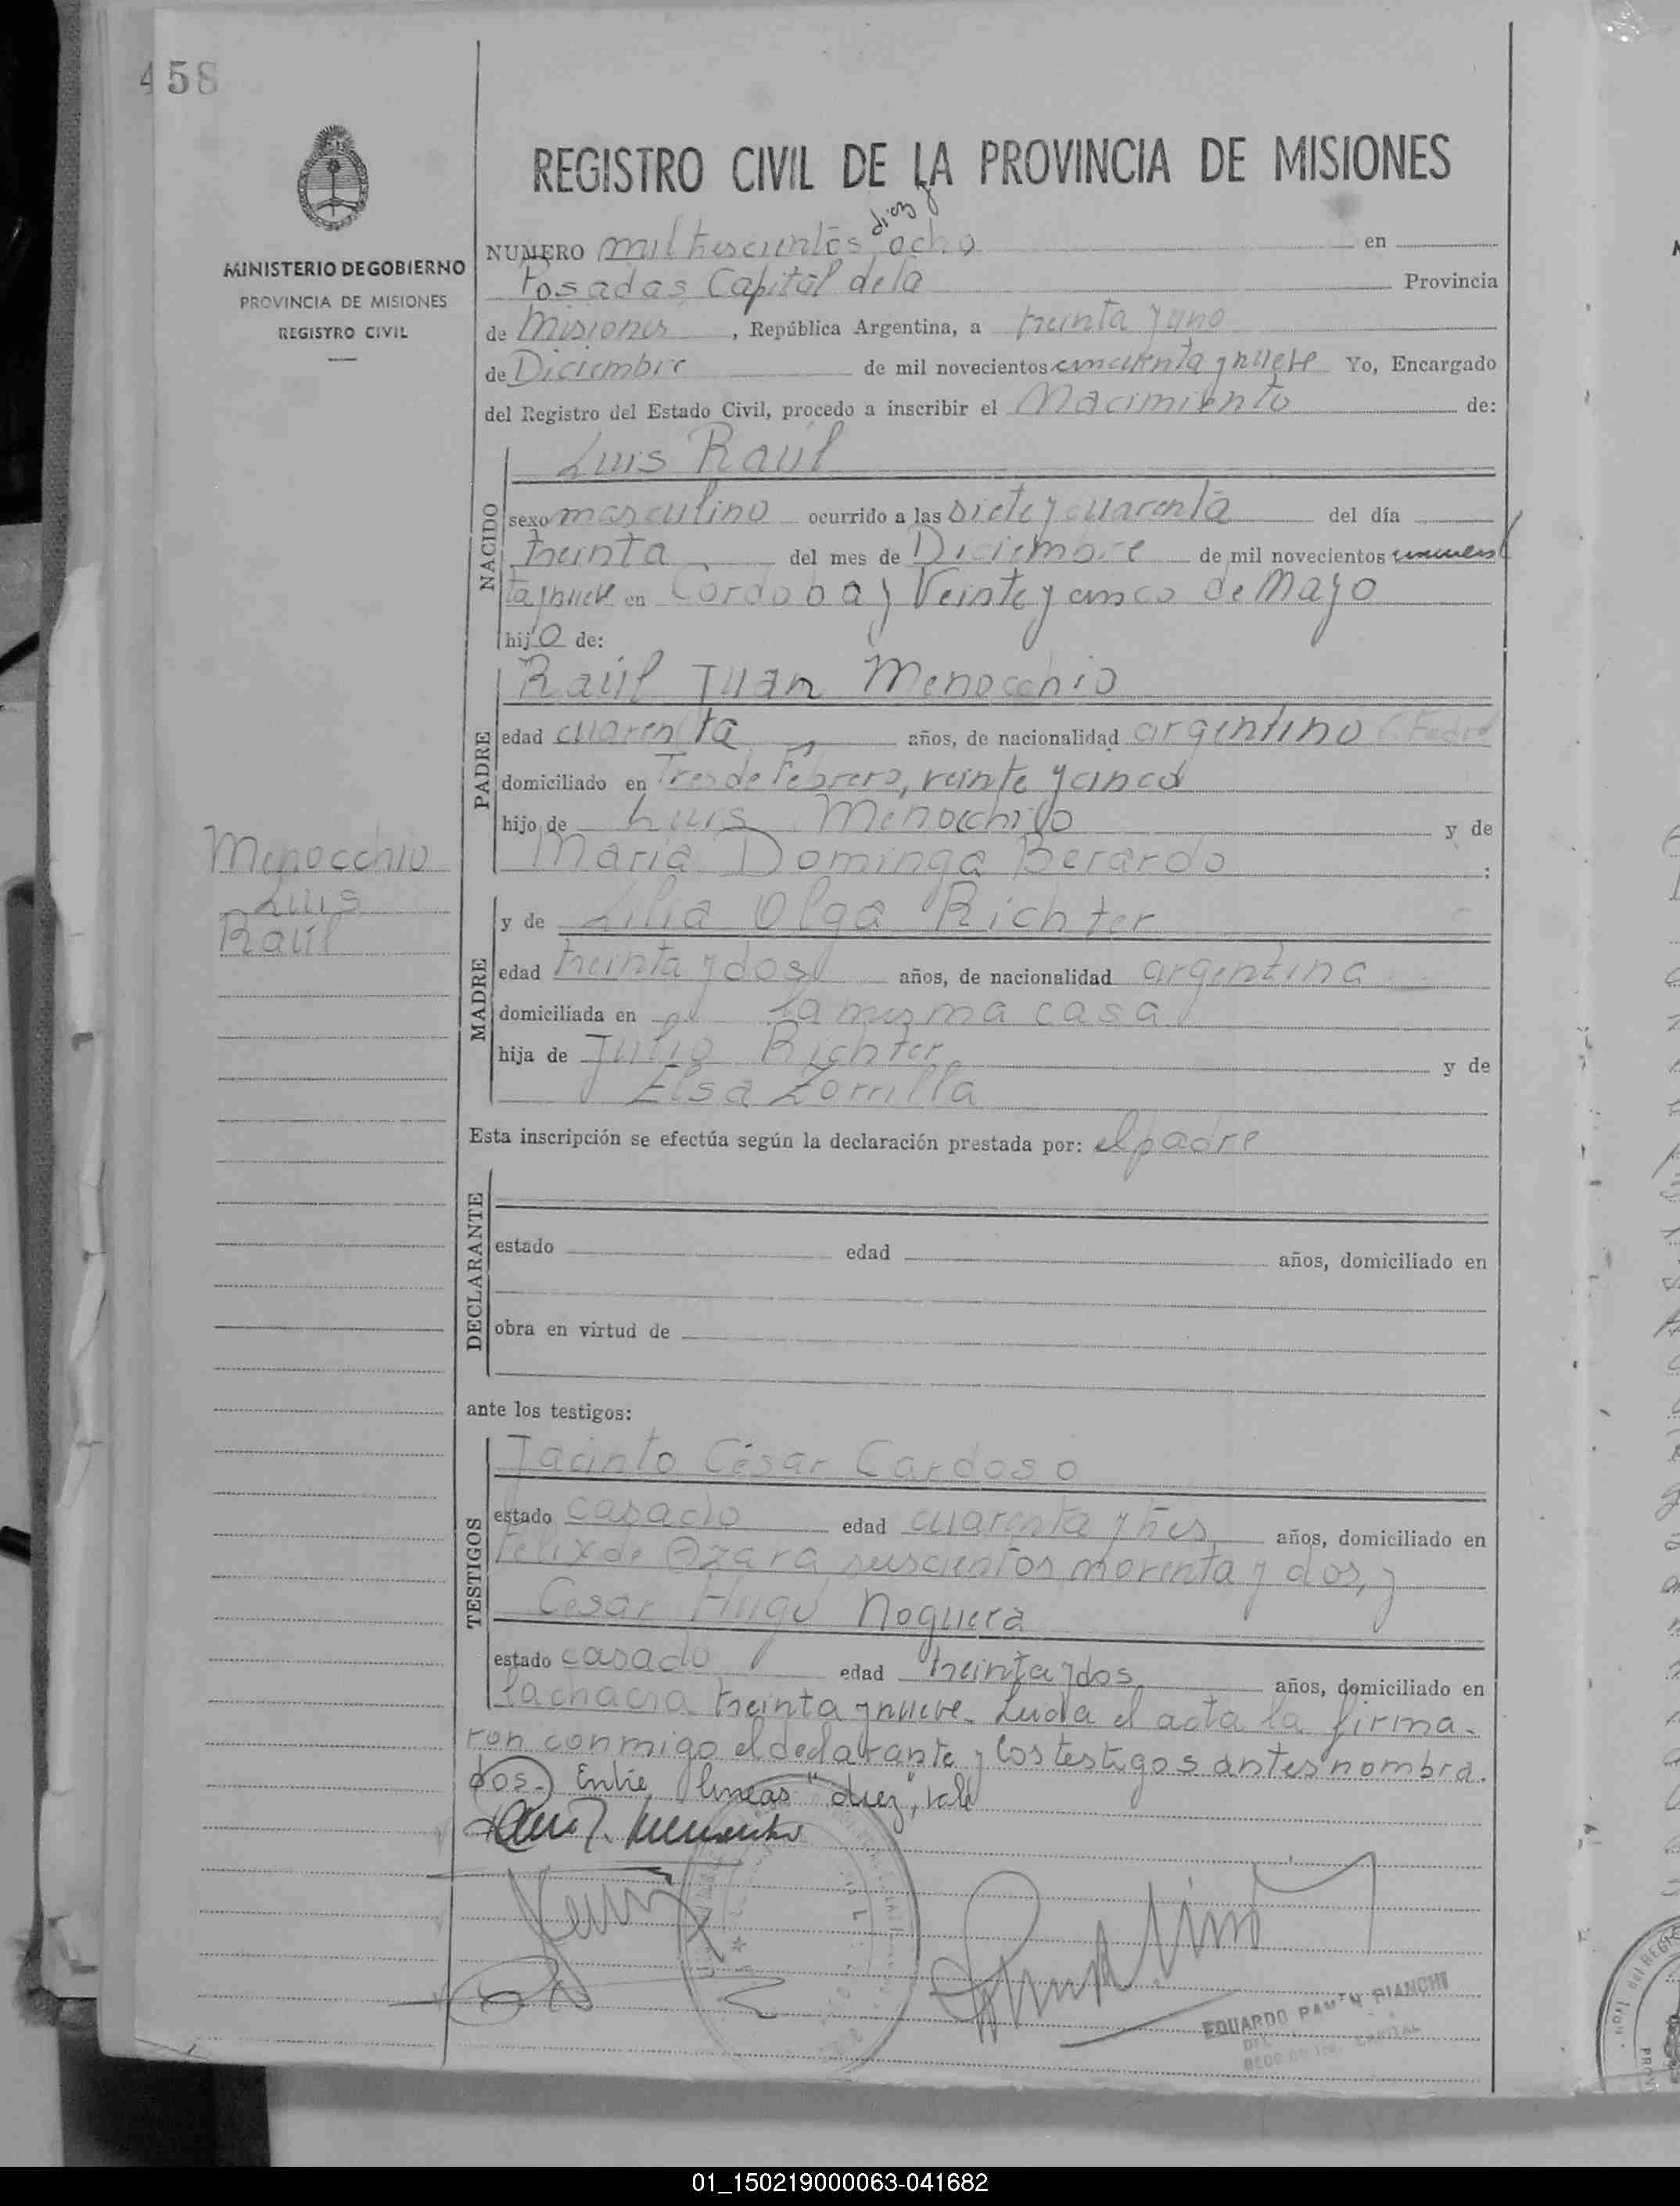 458
REGISTRO CIVIL DE LA PROVINCIA DE MISIONES
MINISTERIO DE GOBIERNO
PROVINCIA DE MISIONES
REGISTRO CIVIL
diez y
NUMERO mil trescientos ocho en
Posadas Capital de la Provincia
de Misiones, República Argentina, a treinta y uno
de Diciembre de mil novecientos cincuenta y nueve Yo, Encargado
del Registro del Estado Civil, procedo a inscribir el Nacimiento de:
NACIDO
Luis Raúl
sexo masculino ocurrido a las siete y cuarenta del día
treinta del mes de Diciembre de mil novecientos cincuen
ta y nueve en Córdoba y Veinte y cinco de Mayo
hijo de:
PADRE
Raúl Juan Menocchio
edad cuarenta años, de nacionalidad argentino
domiciliado en Tres de Febrero, veinte y cinco
hijo de Luis Menocchio y de
María Dominga Berardo :
Menocchio
Luis
Raúl
MADRE
y de Lilia Olga Richter
edad treinta y dos años, de nacionalidad argentina
domiciliada en la misma casa
hija de Julio Richter y de
Elsa Zorrilla
Esta inscripción se efectúa según la declaración prestada por: el padre
DECLARANTE
estado edad años, domiciliado en
obra en virtud de
ante los testigos:
TESTIGOS
Jacinto César Cardoso
estado casado edad cuarenta y tres años, domiciliado en
Félix de Azara seiscientos noventa y dos, y
César Hugo Noguera
estado casado edad treinta y dos años, domiciliado en
la chacra treinta y nueve. Leída el acta la firma-
ron conmigo el declarante y los testigos antes nombra-
dos- Entre líneas "diez y", vale
EDUARDO RAMON BIANCHI
CAPITAL
01_150219000063-041682